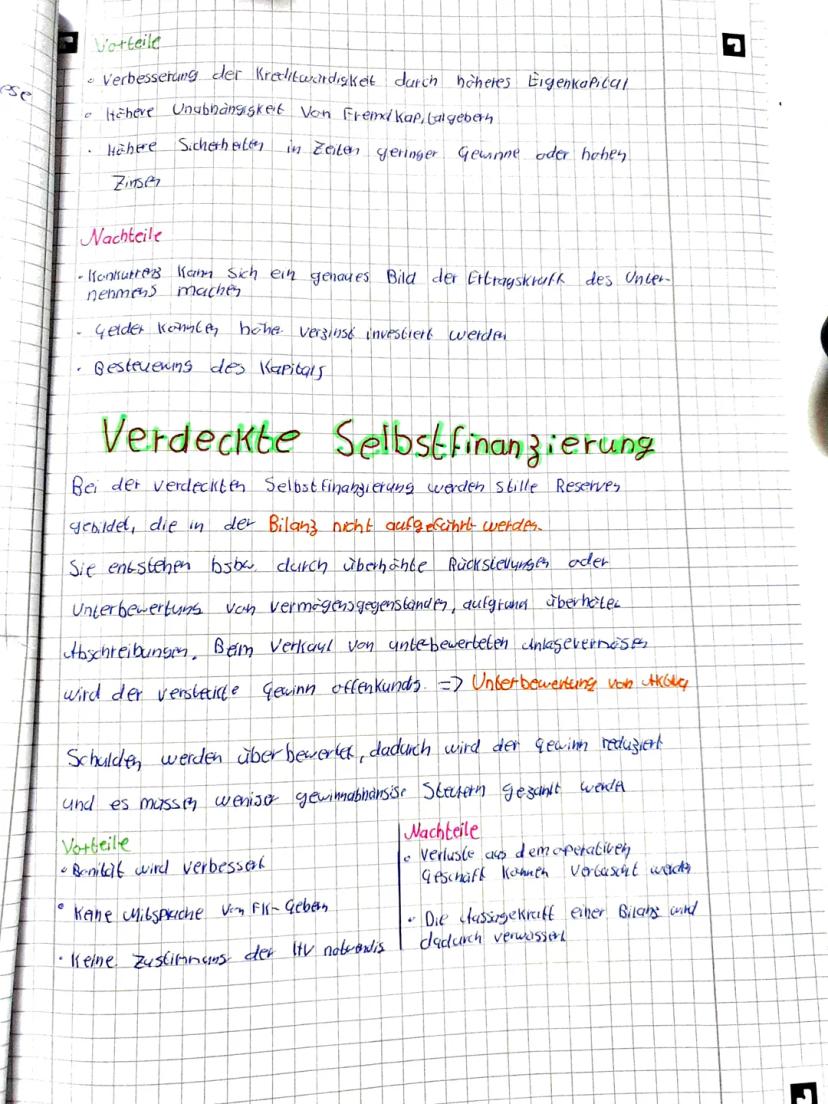 ese
Vorteile
• Verbesserung der Kreditwürdigkeit durch höheres Eigenkapital
• Höhere Unabhängigkeit von Fremdkapitalgebern
• Höhere Sicherheiten in Zeiten geringer Gewinne oder hohen
Zinsen
Nachteile
• Konkurrenz kann sich ein genaues Bild der Ertragskraft des Unter-
nehmens machen
• Gelder könnten höher verzinst investiert werden
• Besteuerung des Kapitals
Verdeckte Selbstfinanzierung
Bei der verdeckten Selbstfinanzierung werden stille Reserven
gebildet, die in der Bilanz nicht aufgeführt werden.
Sie entstehen bspw. durch überhöhte Rückstellungen oder
Unterbewertung von Vermögensgegenständen, aufgrund überhöhter
Abschreibungen. Beim Verkauf von unterbewerteten Anlagevermögen
wird der versteckte Gewinn offenkundig. => Unterbewertung von Aktiva
Schulden werden überbewertet, dadurch wird der Gewinn reduziert
und es müssen weniger gewinnabhängige Steuern gezahlt werden
Vorteile
• Bonität wird verbessert
• Keine Mitsprache von FK-Gebern
• Keine Zustimmung der HV notwendig
Nachteile
• Verluste aus dem operativen
Geschäft können vertuscht werden
• Die Aussagekraft einer Bilanz wird
dadurch verwässert